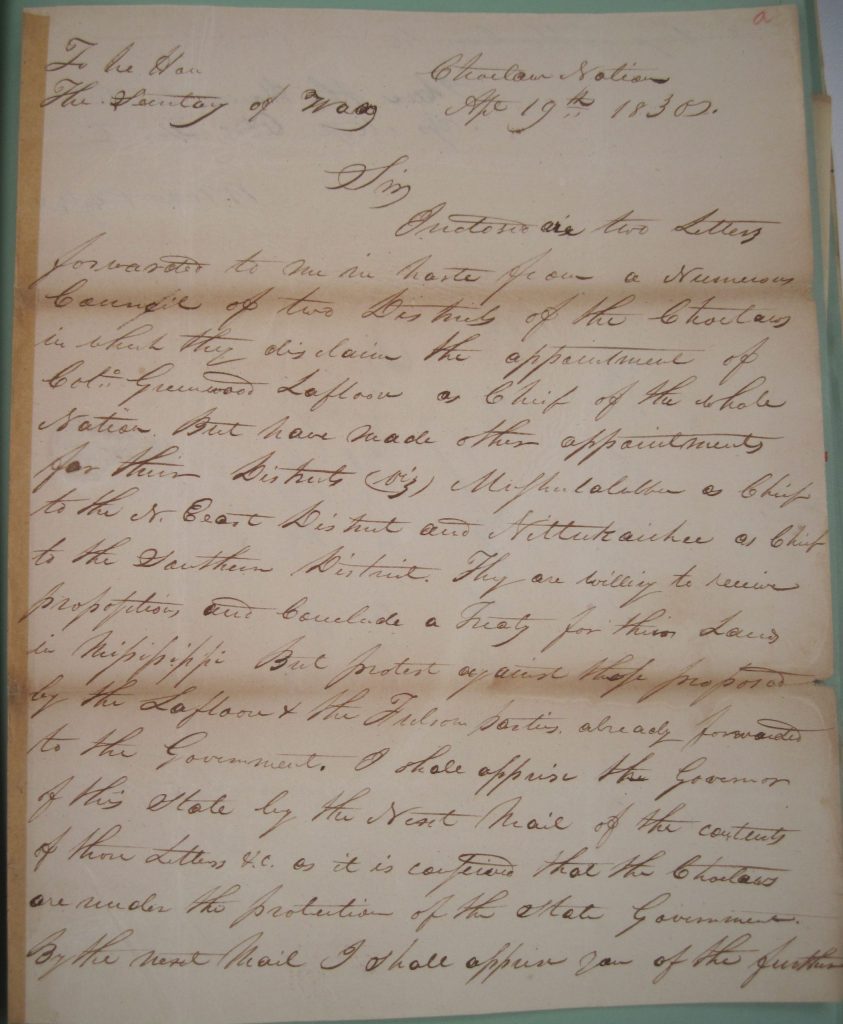 a
To he Hon
The Secretary of War
Choctaw Nation
Apl 19th 1830.
Sir
Inclosed are two Letters
forwarded to me in haste from a Numerous
Council of two Districts of the Choctaws
in which they disclaim the appointment of
Colo. Greenwood Lafloor as Chief of the whole
Nation. But have made other appointments
for their Districts (Viz) Mushulatubba as Chief
to the N. East District and Nittukaichee as Chief
to the Southern District. They are willing to receive
propositions and Conclude a Treaty for their Lands
in Mississippi But protest against those proposed
by the Lafloor & the Fulsom parties, already forwarded
to the Government. I shall apprise the Governor
of this State by the Next Mail of the contents
of those Letters &c. as it is that the Choctaws
are under the protection of the State Government.
By the next Mail I shall apprise you of the further